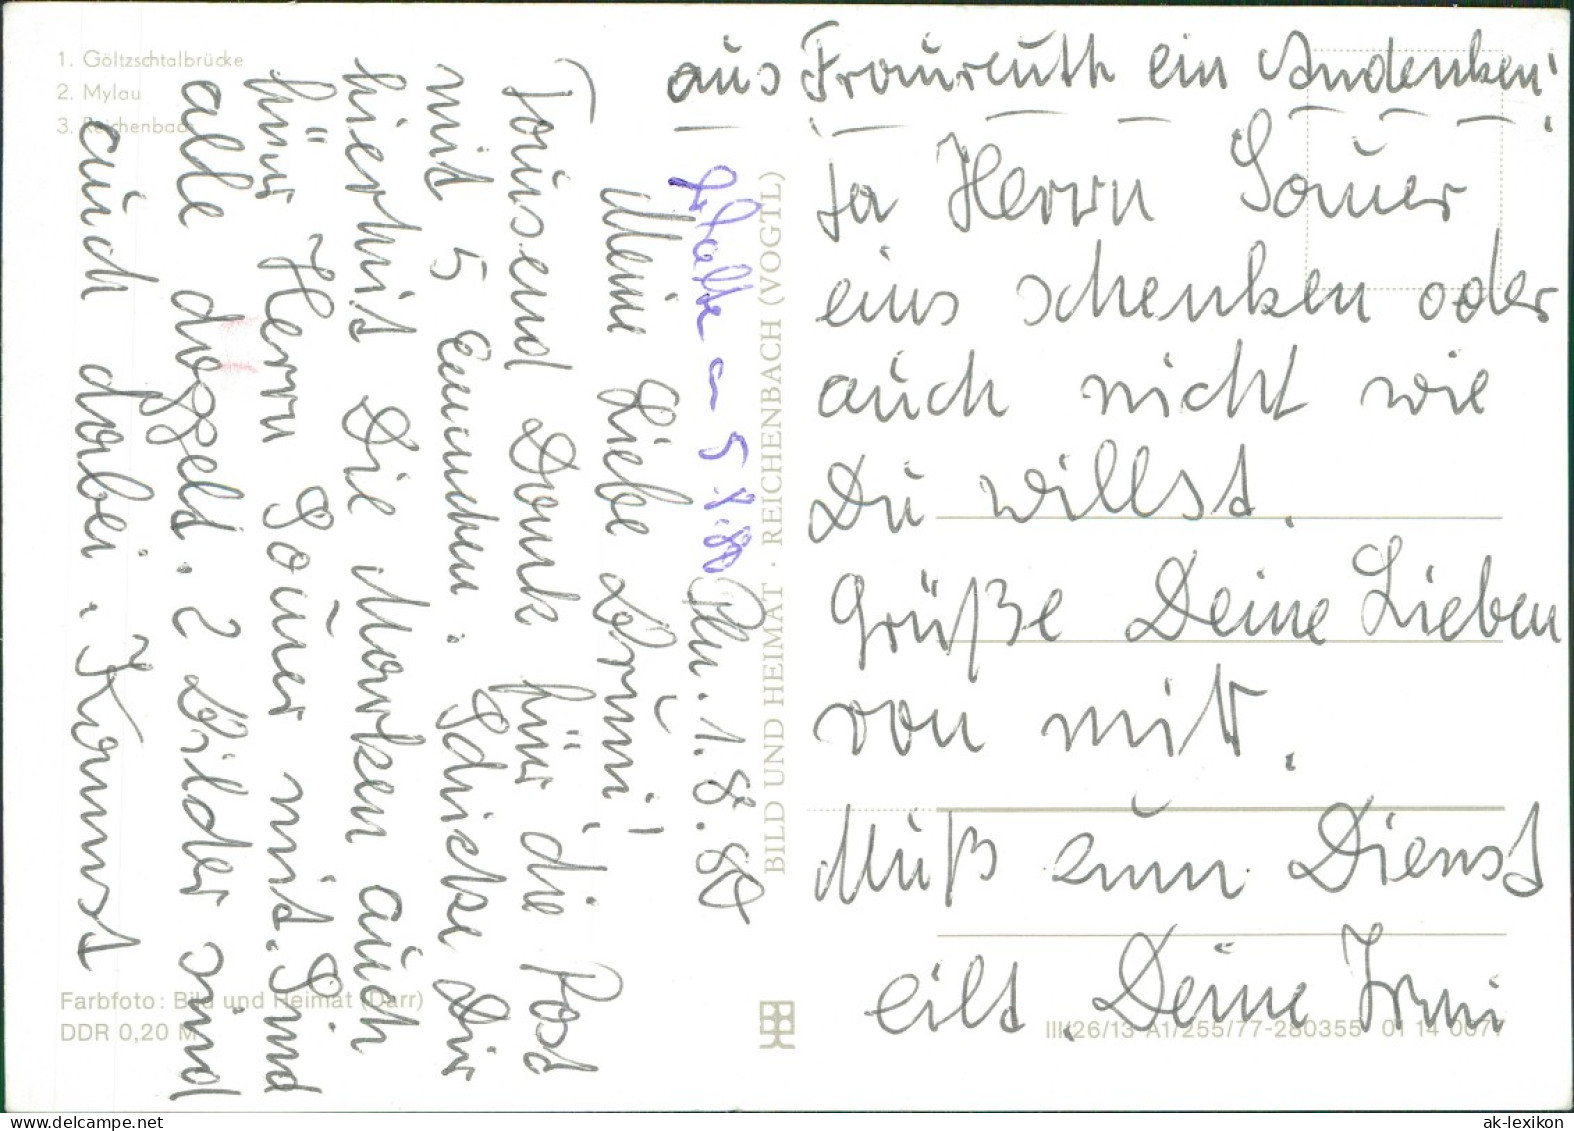 1. Göltzschtalbrücke
2. Mylau
3. Reichenbach
aus Fraureuth ein Andenken!
Plu. 1.8.80
Meine Liebe Irmi!
Tausend Dank für die Post
mit 5 Schicke Dir
hiermit Die Marken auch
für Herrn Sauer mit. Sind
alle doppelt. 2 Bilder sind
auch dabei. Kannst
ja Herrn Sauer
eins schenken oder
auch nicht wie
Du willst.
Grüße Deine Lieben
von mir.
Muß zum Dienst
eilt. Deine Irmi
5.8.80
BILD UND HEIMAT · REICHENBACH (VOGTL)
Farbfoto: Bild und Heimat (Darr)
DDR 0,20 M
III/26/13 A1/255/77-280355 01 14 0077
ak-lexikon